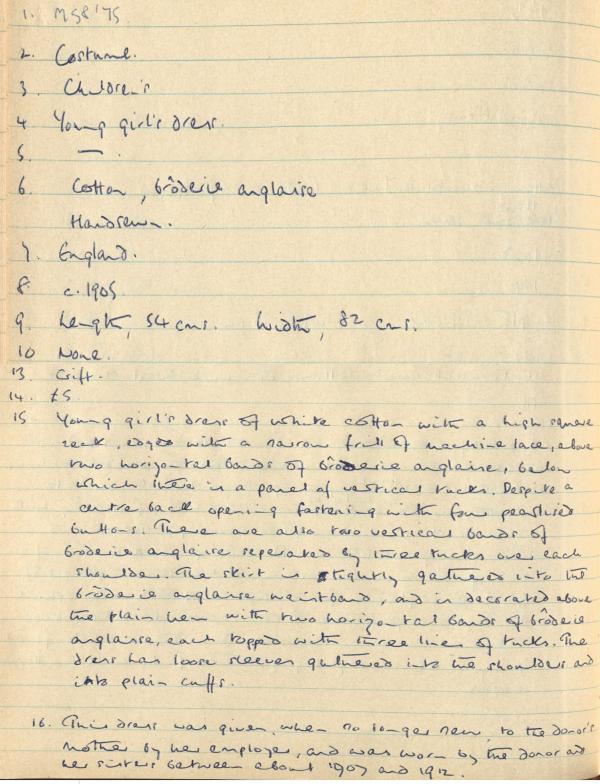 1. M58'75
2. Costume.
3. Children's
4 Young girl's dress.
5. — .
6. Cotton, brôderie anglaise
Handsewn.
7. England.
8. c. 1905
9. Length, 54 cms. Width, 82 cms.
10 None.
13. Gift.
14. £5
15 Young girl's dress of white cotton with a high square
neck, edged with a narrow frill of machine lace, above
two horizontal bands of brôderie anglaise, below
which there is a panel of vertical tucks. Despite a
centre back opening fastening with four pearlised
buttons. There are also two vertical bands of
broderie anglaise seperated by three tucks over each
shoulder. The skirt is slightly gathered into the
brôderie anglaise waistband, and is decorated above
the plain hem with two horizontal bands of brôderie
anglaise, each topped with three lines of tucks. The
dress has loose sleeves gathered into the shoulders and
into plain cuffs.
16. This dress was given, when no longer new, to the donor's
mother by her employer, and was worn by the donor and
her sisters between about 1907 and 1912.